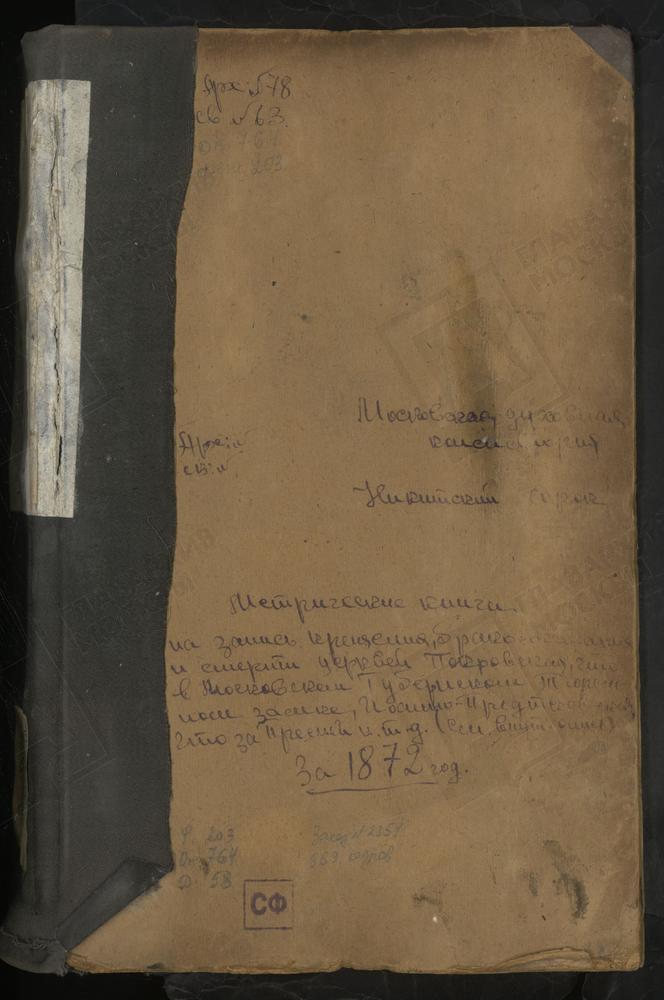 Арх. №78
св №63.
оп 764
фон. 203
Московская духовная
консистория
Арх: №
св: №
Никитский сорок
Метрические книги
на запись крещения, бракосочетания
и смерти церквей Покровская, что
в Московском Губернском Тюрем-
ном замке, Иоанно-Предтеченская
что за Пресней и.т.д. (см. внут. опись)
За 1872 год.
Ф 203
Оп 764
Д 58
СФ